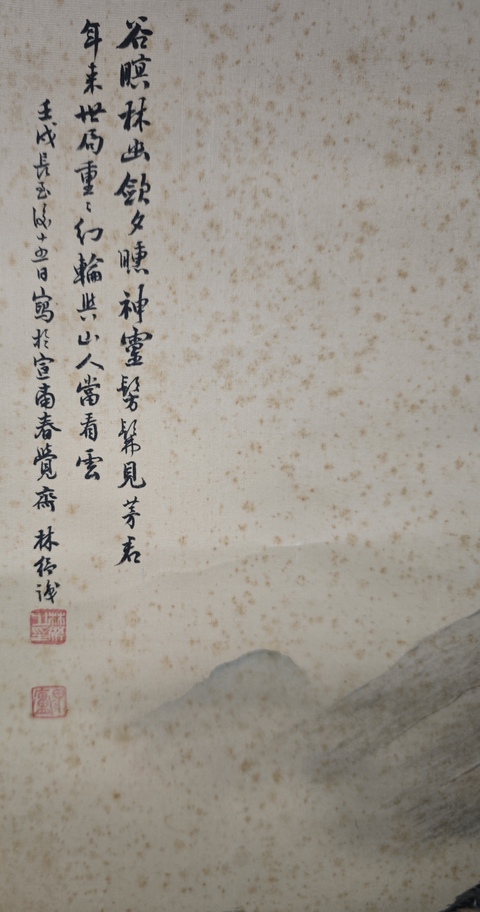 谷暝林幽斂夕曛神靈髣髴見茅君
年来世局重〻幻輪與山人當看雲
壬戌長至後十五日寫於宣南春覺齋 林紓識